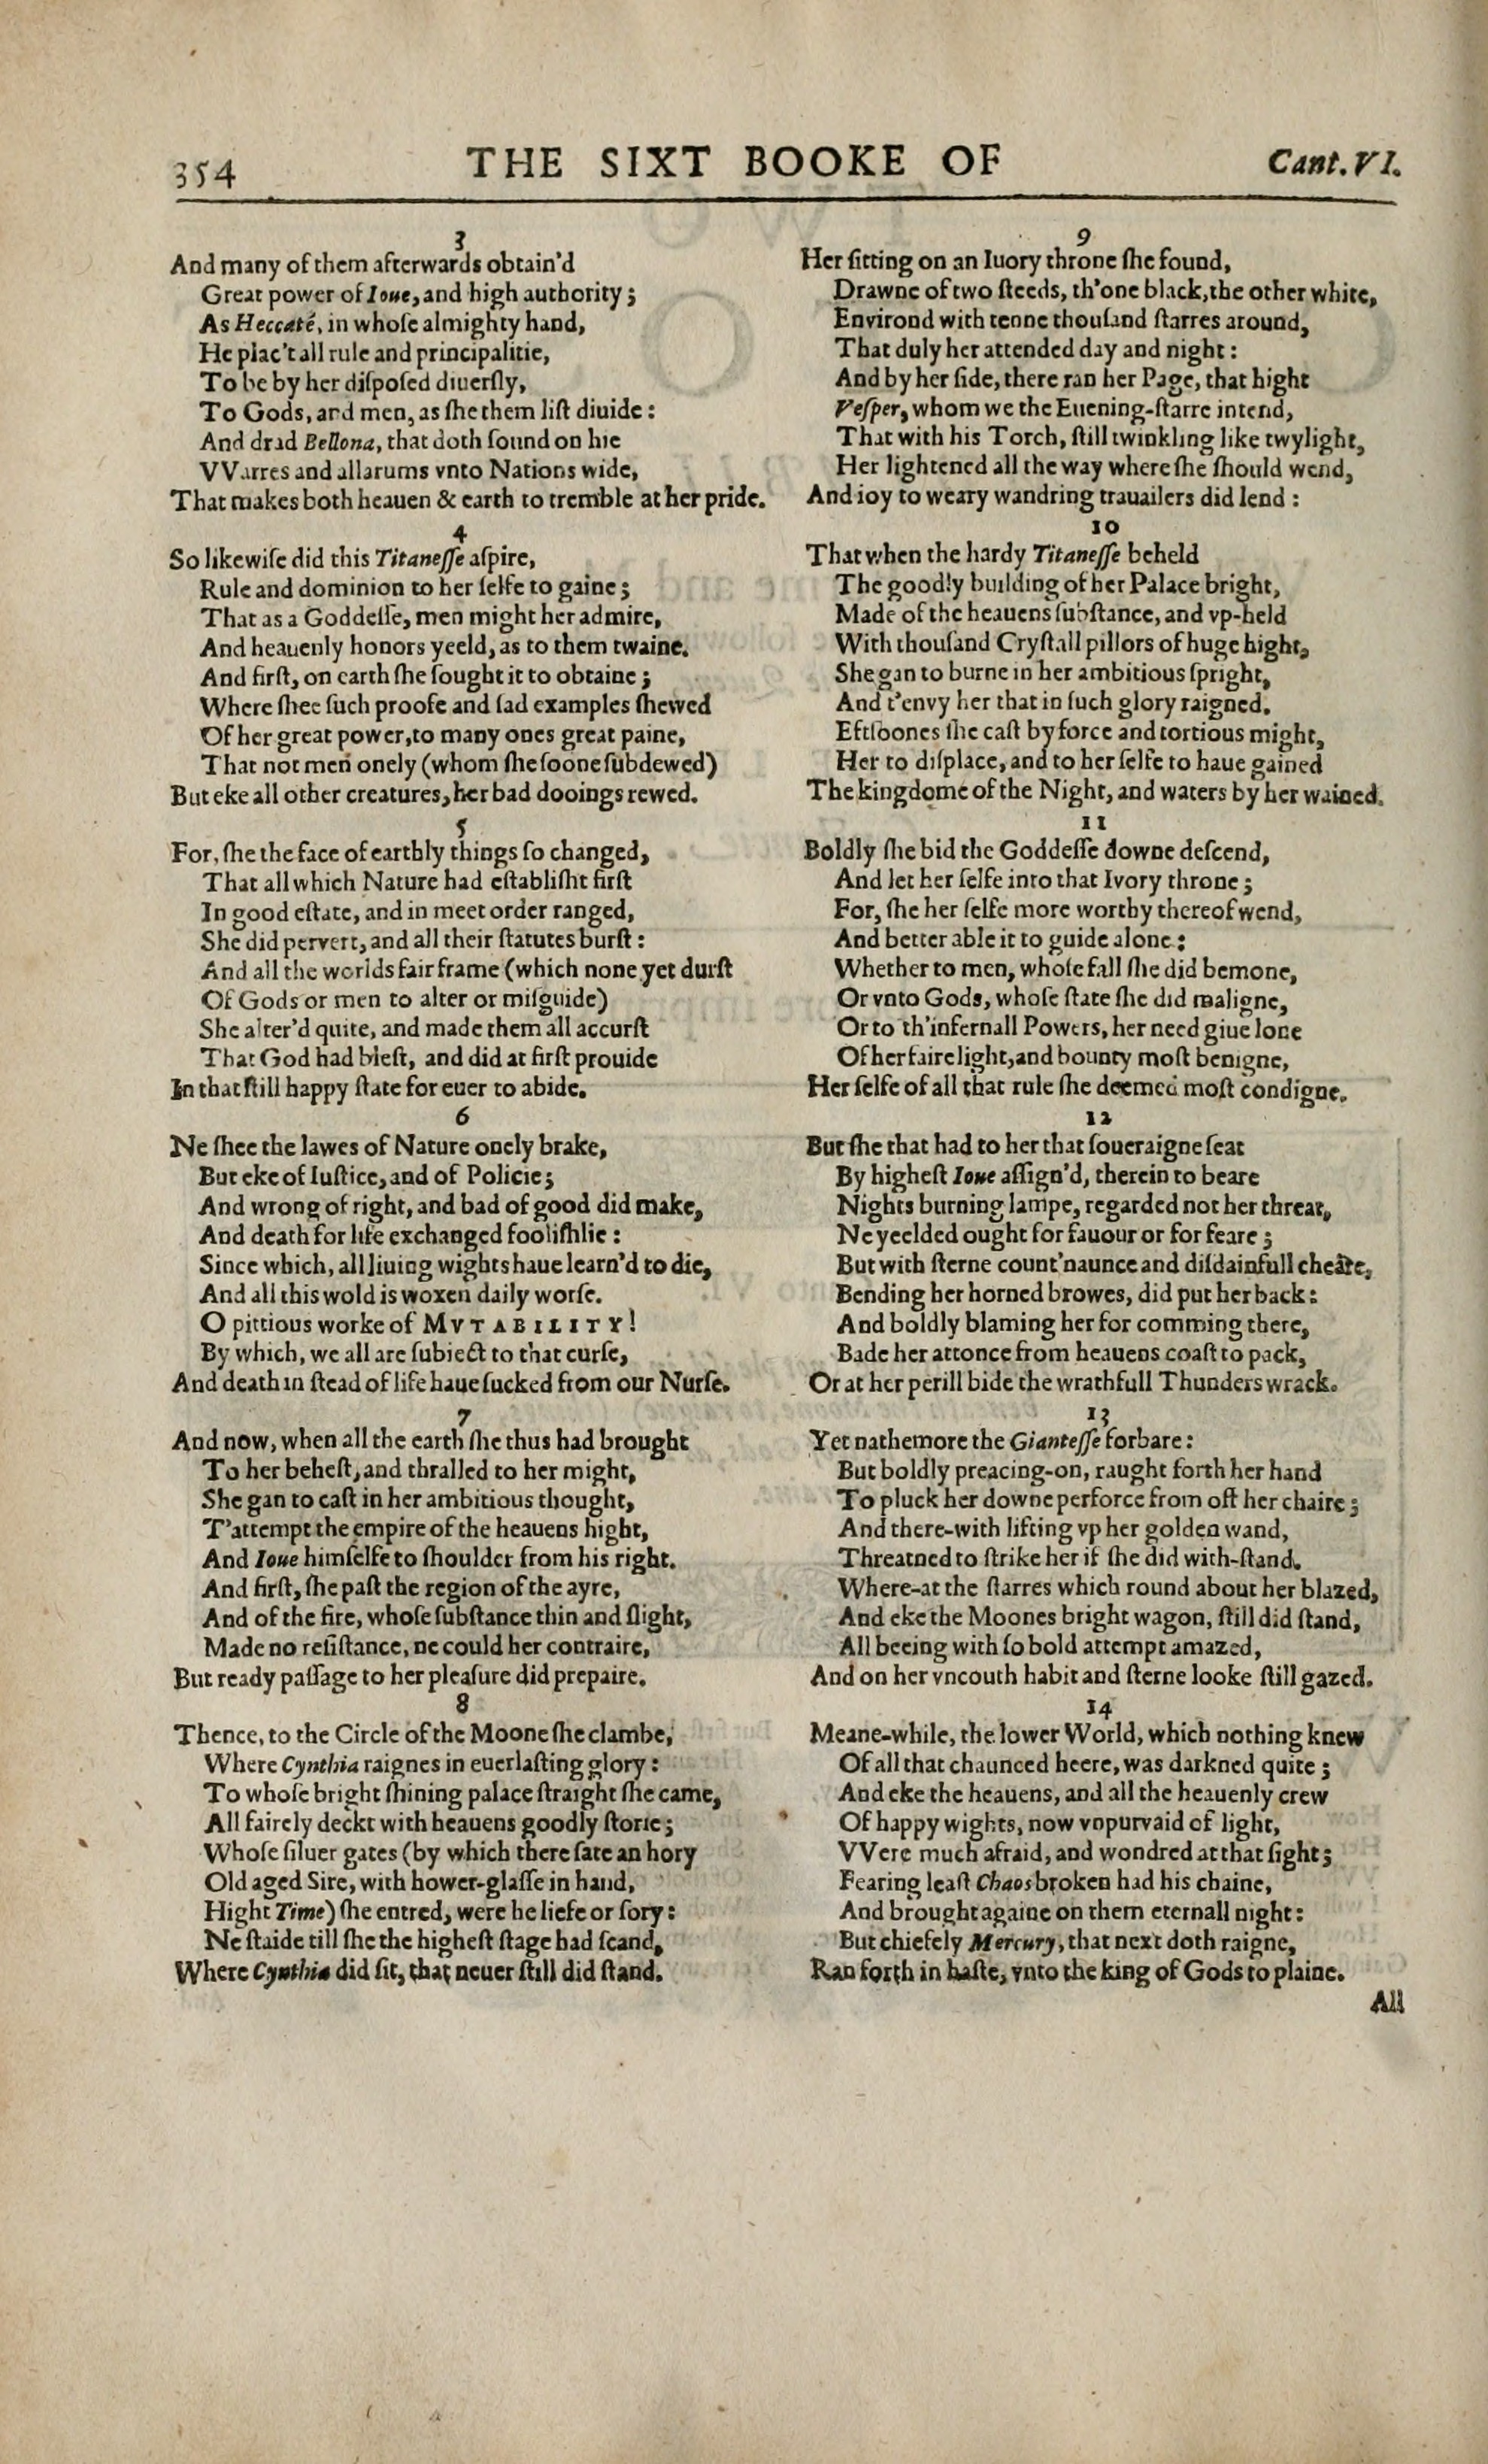 354 THE SIXT BOOKE OF Cant. VI.
3
And many of them afterwards obtain'd
Great power of Ioue, and high authority;
As Heccaté, in whose almighty hand,
He plac't all rule and principalitie,
To be by her diſpoſed diuerſly,
To Gods, and men, as ſhe them liſt diuide:
And drad Bellona, that doth ſound on hie
VVarres and allarums vnto Nations wide,
That makes both heauen & earth to tremble at her pride.
4
So likewiſe did this Titaneſſe aſpire,
Rule and dominion to her ſelfe to gaine;
That as a Goddeſſe, men might her admire,
And heauenly honors yeeld, as to them twaine.
And firſt, on earth ſhe ſought it to obtaine;
Where ſhee ſuch proofe and ſad examples ſhewed
Of her great power, to many ones great paine,
That not men onely (whom ſhe ſoone ſubdewed)
But eke all other creatures, her bad dooings rewed.
5
For, ſhe the face of earthly things ſo changed,
That all which Nature had eſtabliſht firſt
In good eſtate, and in meet order ranged,
She did pervert, and all their ſtatutes burſt:
And all the worlds fair frame (which none yet durſt
Of Gods or men to alter or miſguide)
She alter'd quite, and made them all accurſt
That God had bleſt, and did at firſt prouide
In that ſtill happy ſtate for euer to abide.
6
Ne ſhee the lawes of Nature onely brake,
But eke of Iuſtice, and of Policie;
And wrong of right, and bad of good did make,
And death for life exchanged fooliſhlie:
Since which, all liuing wights haue learn'd to die,
And all this wold is woxen daily worſe.
O pittious worke of MVTABILITY!
By which, we all are ſubiect to that curſe,
And death in ſtead of life haue ſucked from our Nurſe.
7
And now, when all the earth ſhe thus had brought
To her beheſt, and thralled to her might,
She gan to caſt in her ambitious thought,
T'attempt the empire of the heauens hight,
And Ioue himſelfe to ſhoulder from his right.
And firſt, ſhe paſt the region of the ayre,
And of the fire, whoſe ſubſtance thin and ſlight,
Made no reſiſtance, ne could her contraire,
But ready paſſage to her pleaſure did prepaire.
8
Thence, to the Circle of the Moone ſhe clambe,
Where Cynthia raignes in euerlaſting glory:
To whoſe bright ſhining palace ſtraight ſhe came,
All fairely deckt with heauens goodly ſtorie;
Whoſe ſiluer gates (by which there ſate an hory
Old aged Sire, with hower-glaſſe in hand,
Hight Time) ſhe entred, were he liefe or ſory:
Ne ſtaide till ſhe the higheſt ſtage had ſcand,
Where Cynthia did ſit, that neuer ſtill did ſtand.
9
Her ſitting on an Iuory throne ſhe found,
Drawne of two ſteeds, th'one black, the other white,
Environd with tenne thouſand ſtarres around,
That duly her attended day and night:
And by her ſide, there ran her Page, that hight
Veſper, whom we the Euening-ſtarre intend,
That with his Torch, ſtill twinkling like twylight,
Her lightened all the way where ſhe ſhould wend,
And ioy to weary wandring trauailers did lend:
10
That when the hardy Titaneſſe beheld
The goodly building of her Palace bright,
Made of the heauens ſubſtance, and vp-held
With thouſand Cryſtall pillors of huge hight,
She gan to burne in her ambitious ſpright,
And t'envy her that in ſuch glory raigned.
Eftſoones ſhe caſt by force and tortious might,
Her to diſplace, and to her ſelfe to haue gained
The kingdome of the Night, and waters by her wained.
11
Boldly ſhe bid the Goddeſſe downe deſcend,
And let her ſelfe into that Ivory throne;
For, ſhe her ſelfe more worthy thereof wend,
And better able it to guide alone:
Whether to men, whoſe fall ſhe did bemone,
Or vnto Gods, whoſe ſtate ſhe did maligne,
Or to th'infernall Powers, her need giue lone
Of her faire light, and bounty moſt benigne,
Her ſelfe of all that rule ſhe deemed moſt condigne.
12
But ſhe that had to her that ſoueraigne ſeat
By higheſt Ioue aſſign'd, therein to beare
Nights burning lampe, regarded not her threat,
Ne yeelded ought for fauour or for feare;
But with ſterne count'naunce and diſdainfull cheare,
Bending her horned browes, did put her back:
And boldly blaming her for comming there,
Bade her attonce from heauens coaſt to pack,
Or at her perill bide the wrathfull Thunders wrack.
13
Yet nathemore the Gianteſſe forbare:
But boldly preacing-on, raught forth her hand
To pluck her downe perforce from off her chaire;
And there-with lifting vp her golden wand,
Threatned to ſtrike her if ſhe did with-ſtand.
Where-at the ſtarres which round about her blazed,
And eke the Moones bright wagon, ſtill did ſtand,
All beeing with ſo bold attempt amazed,
And on her vncouth habit and ſterne looke ſtill gazed.
14
Meane-while, the lower World, which nothing knew
Of all that chaunced heere, was darkned quite;
And eke the heauens, and all the heauenly crew
Of happy wights, now vnpurvaid of light,
VVere much afraid, and wondred at that ſight;
Fearing leaſt Chaos broken had his chaine,
And brought againe on them eternall night:
But chiefely Mercury, that next doth raigne,
Ran forth in haſte, vnto the king of Gods to plaine.
All